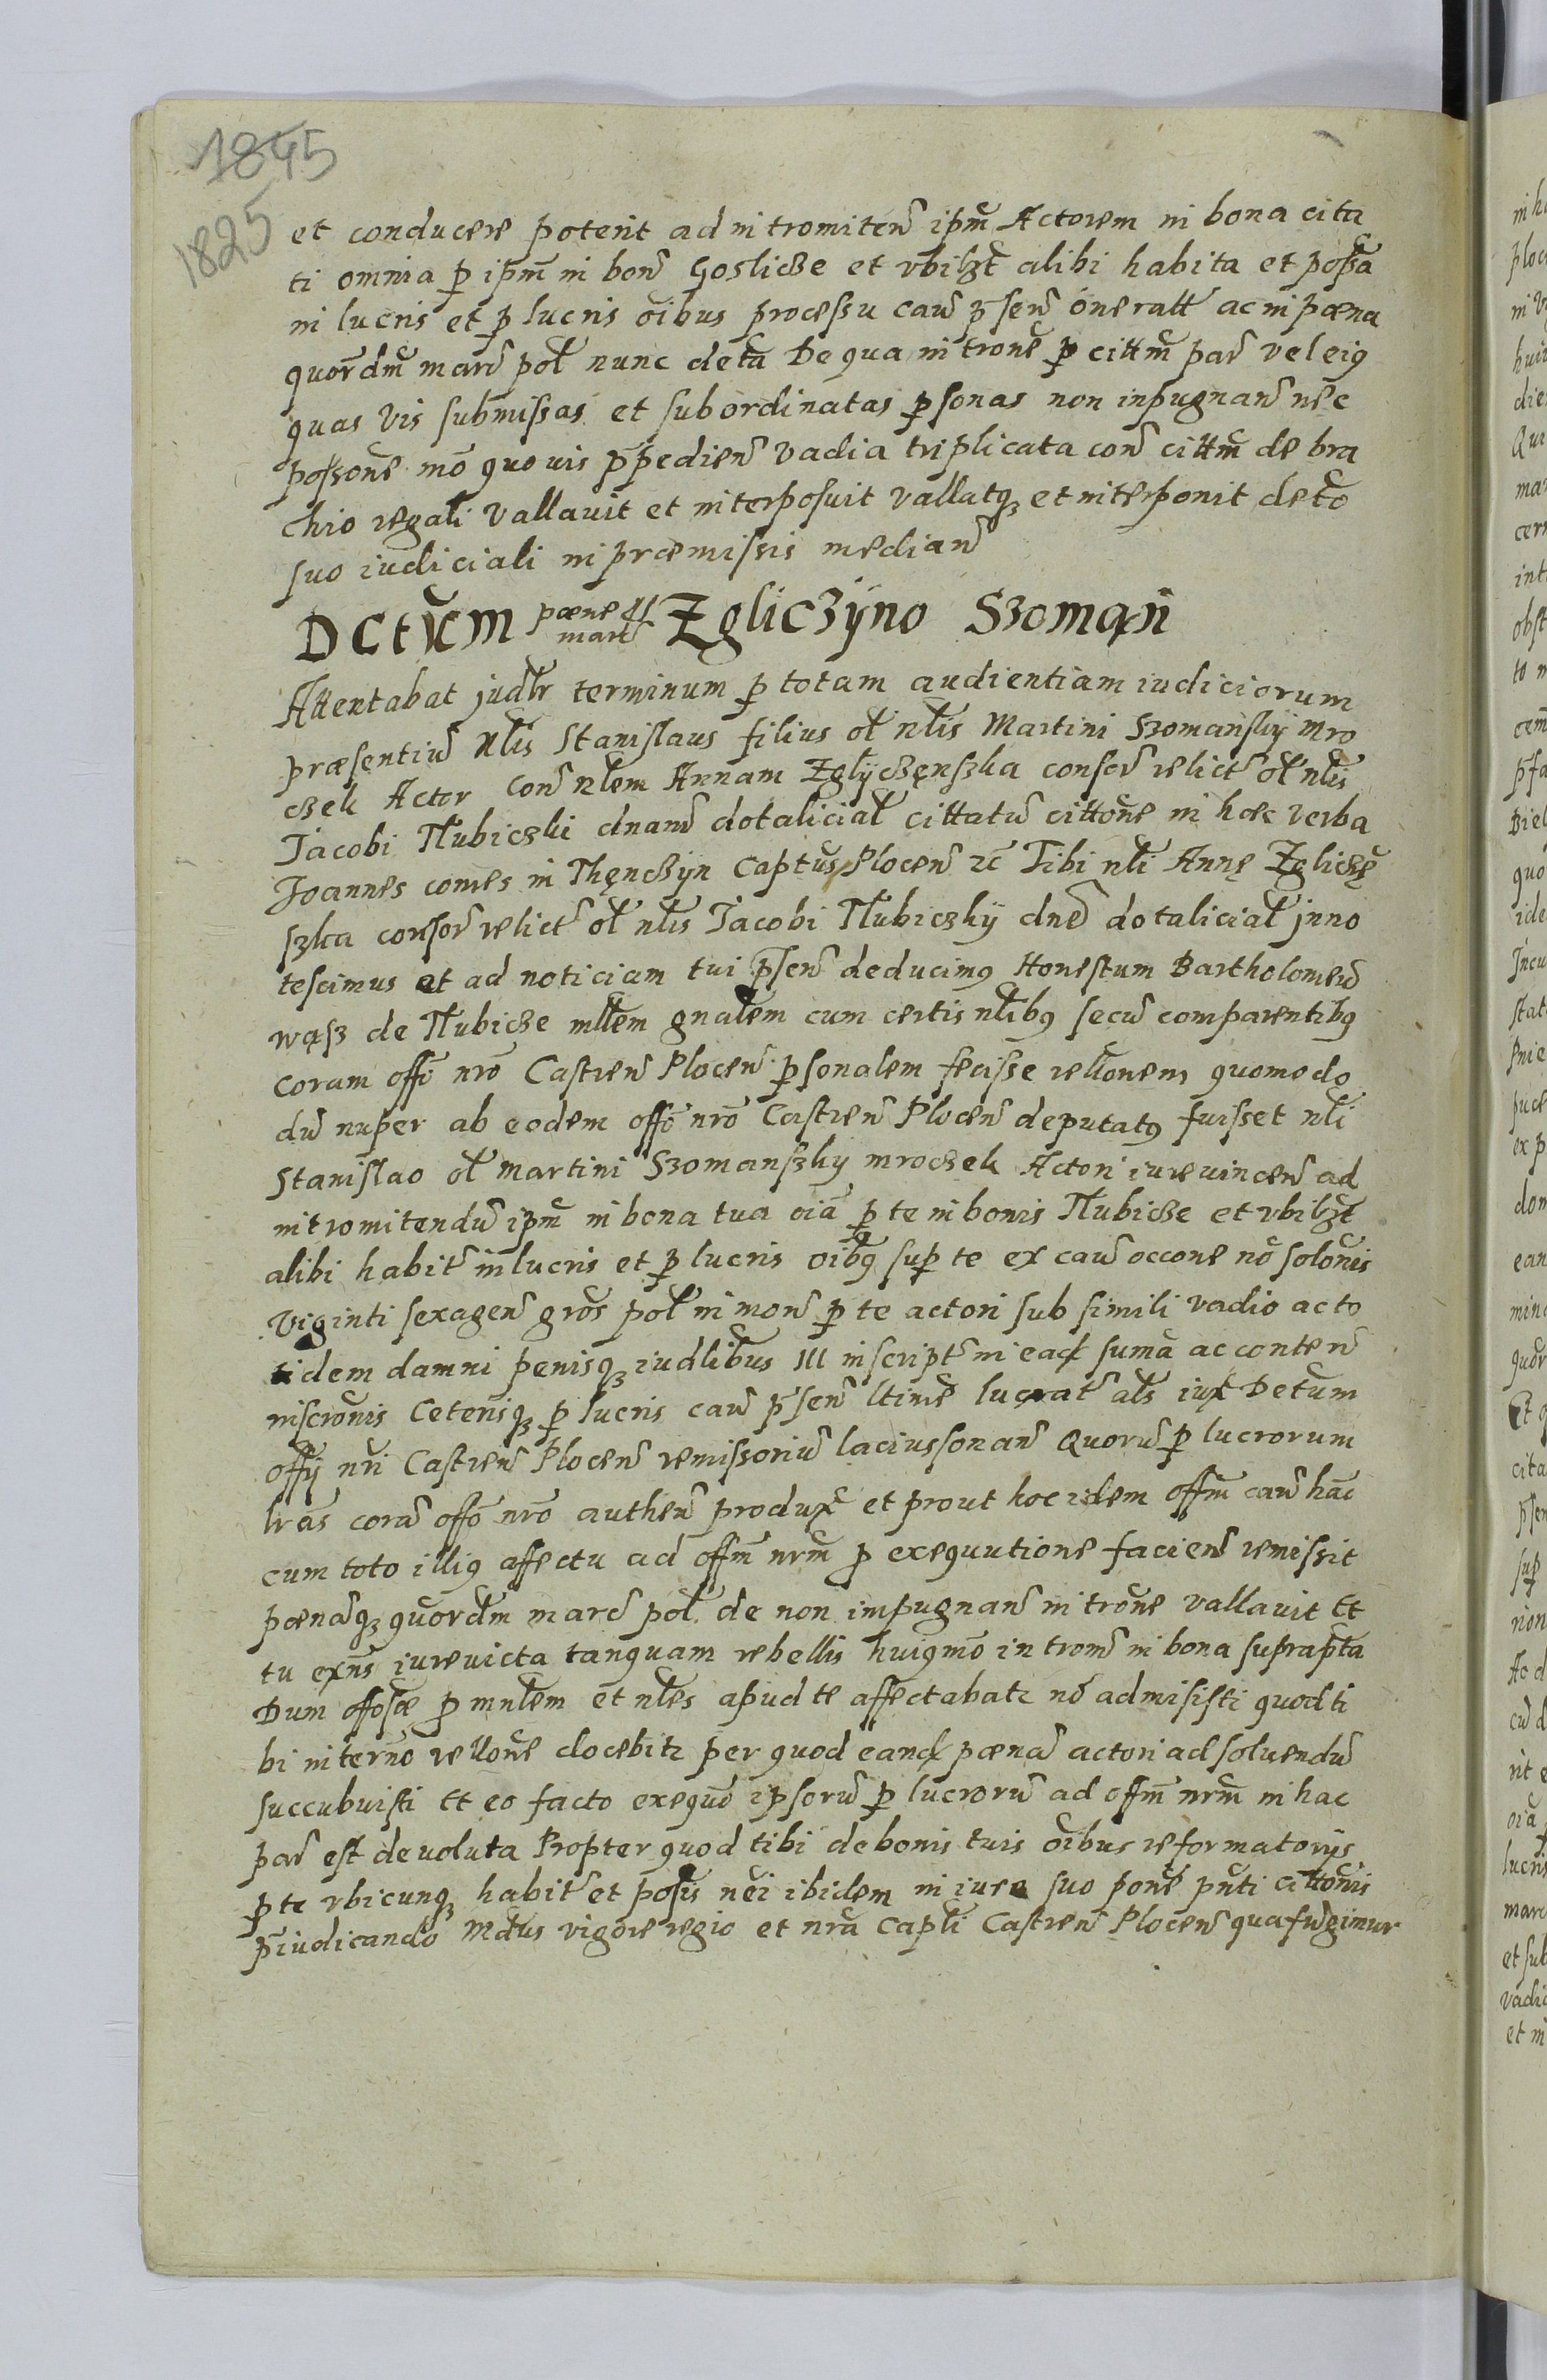 1845
1825
et conducere poterit ad intromiten̄ ipm̄ Actorem in bona cita
ti omnia p ipm̄ in bon̄ Goslicze et vbilzt alibi habita et possa
in lucris et p lucris oībus processu caū pn̄sen̄ oneratt ac in pœna
quordm̄ marc̄ pol̄ nunc detā De qua introne p cittm̄ par̄ vel eiꝯ
quas vis submissas et subordinatas psonas non inpugnan̄ nēc
possone mō quouis ppedien̄ vadia triplicata con̄ cittm̄ de bra
chio regali vallauit et interposuit vallatqꝫ et interponit detō
suo iudiciali in præmissis median̄
Dctum pœne 4 marc̄ Zgliczÿno Szomąn̄
Attentabat judlr terminum p totam audientiam iudiciorum
præsentiū Nlis Stanislaus filius ol̄ nlis Martini Szomanskÿ Mro
czek Actor con̄ nlem Annam Zglÿczęnszka consor̄ relict̄ ol̄ nlis
Jacobi Tlubiczki dnam̄ dotalicial̄ cittatū cittone in hæc verba
Joannes comes in Thęnczÿn Captūs Plocen̄ rc̄ Tibi nli Annę Zgliczę
szka consor̄ relict̄ ol̄ nlis Jacobi Tlubiczkÿ dnē dotalicial̄ jnno
tescimus et ad noticiam tui pn̄sen̄ deducimꝯ Honestum Bartholomeū
wąsz de Tlubicze mllem gnalem cum certis nlibꝯ secū comparentibꝯ
coram offō nrō Castren̄ Plocen̄ psonalem fecisse rellonem quomodo
dū nuper ab eodem offō nrō Castren̄ Plocen̄ deputatꝯ fuisset nli
Stanislao ol̄ Martini Szomanszky mroczek Actori iurevincen̄ ad
intromitendū ipm̄ in bona tua oiā p te in bonis Tlubicze et vbilzt
alibi habit̄ in lucris et p lucris oibꝯ sup te ex caū occone nō solonis
Viginti sexagen̄ gros pol̄ in mon̄ p te actori sub simili vadio ac to
tidem damni penisqꝫ iudlibus III inscript̄ in ead sumā ac conten̄
inscronis Ceterisqꝫ p lucris caū pn̄sen̄ ltime lucrat̄ als iux̄ Detum
offÿ nri Castren̄ Plocen̄ remissoriū lacius sonan̄ Quorū p lucrorum
lrās corā offō nrō authen̄ produx̄ et prout hoc idem offm̄ caū hāc
cum toto illiꝯ affectu ad offm̄ nrm̄ p exequutione facien̄ remissit
pœnāqꝫ quordm marc̄ pol̄ de non impugnan̄ introne vallauit Et
tu exn̄s iurevicta tanquam rebellis huiꝯmō introm̄ in bona suprapta
Dum offose p mnlem et nles apud te affectabatr nō admisisti quod ti
bi in ternō rellone docebitr per quod eand pœnā actori ad soluendū
succubuisti Et eo facto exequō ipsorū p lucrorū ad offm̄ nrm̄ in hac
par̄ est devoluta Propter quod tibi de bonis tuis oībus reformatorÿs
p te vbicunqꝫ habit̄ et possis nēi ibidem in iure suo pone pn̄ti cittonis
piudicando Mdūs vigore regio et nrā Capli Castren̄ Plocen̄ qua fūgimur